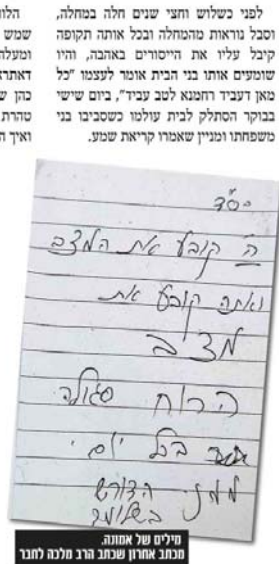 לפני כשלוש וחצי שנים חלה במחלה,
וסבל נוראות מהמחלה ובכל אותה תקופה
קיבל עליו את הייסורים באהבה, והיו
שומעים אותו בני הבית אומר לעצמו "כל
מאן דעביד רחמנא לטב עביד", ביום שישי
בבוקר הסתלק לבית עולמו כשסביבו בני
משפחתו ומניין שאמרו קריאת שמע.
הלוו
שמש
ומעלה
דאתרא
כהן ש
טהרת
ואיך ה
בס"ד
ה' קובע את המצב
ואתה קובע את
מצב
הרוח סגולה
בכל יום
ממני הדורש
בשלומך
מילים של אמונה.
מכתב אחרון שכתב הרב מלכה לחבר